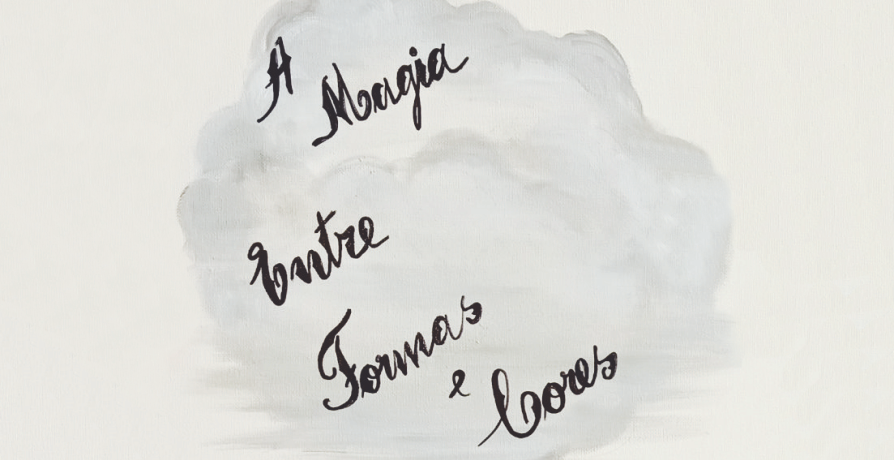 A
Magia
Entre
Formas
e Cores